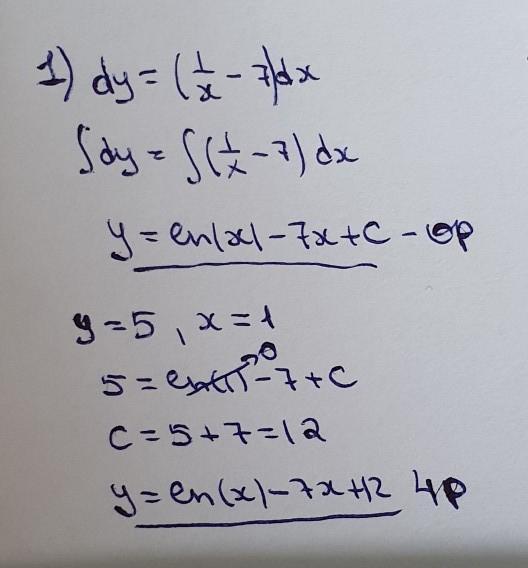 1) dy = (1/x - 7)dx
∫dy = ∫(1/x - 7) dx
y = ln|x| - 7x + C - OP
y = 5, x = 1
5 = ln(1) → 0 - 7 + C
C = 5 + 7 = 12
y = ln(x) - 7x + 12 4P